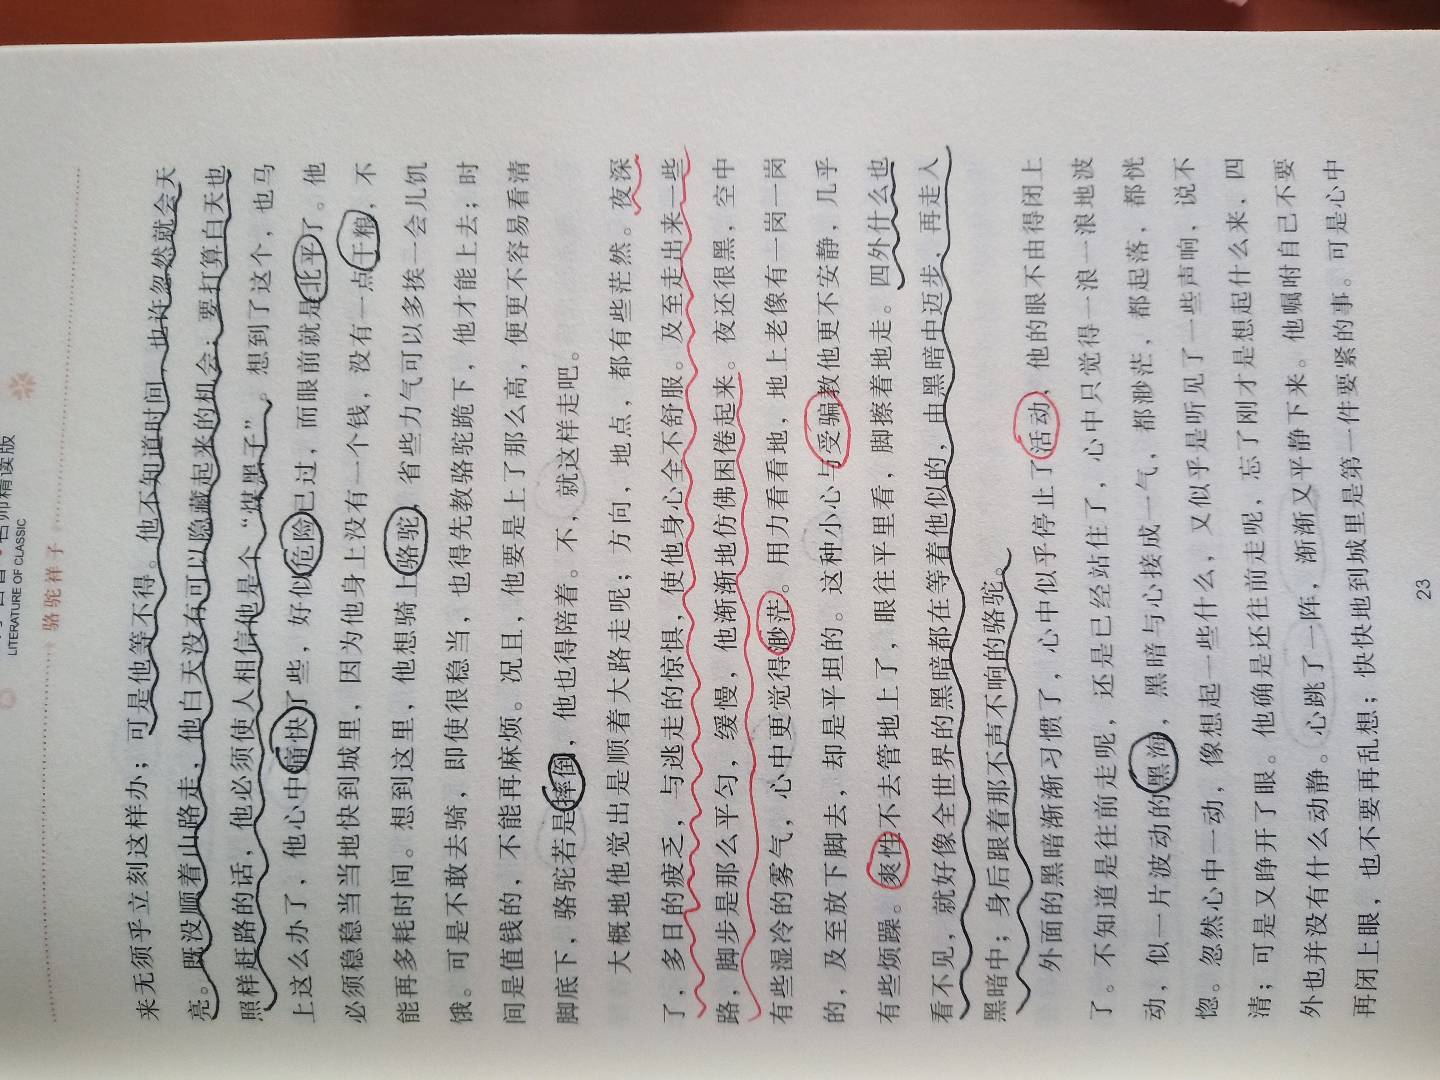 名师精读版
LITERATURE OF CLASSIC
骆驼祥子
来无须乎立刻这样办；可是他等不得。他不知道时间，也许忽然就会天
亮。既没顺着山路走，他白天没有可以隐藏起来的机会；要打算白天也
照样赶路的话，他必须使人相信他是个“煤黑子”。想到了这个，也马
上这么办了，他心中痛快了些，好似危险已过，而眼前就是北平了。他
必须稳稳当当地快到城里，因为他身上没有一个钱，没有一点干粮，不
能再多耗时间。想到这里，他想骑上骆驼，省些力气可以多挨一会儿饥
饿。可是不敢去骑，即使很稳当，也得先教骆驼跪下，他才能上去；时
间是值钱的，不能再麻烦。况且，他要是上了那么高，便更不容易看清
脚底下，骆驼若是摔倒，他也得陪着。不，就这样走吧。
大概地他觉出是顺着大路走呢；方向，地点，都有些茫然。夜深
了，多日的疲乏，与逃走的惊惧，使他身心全不舒服。及至走出来一些
路，脚步是那么平匀，缓慢，他渐渐地仿佛困倦起来。夜还很黑，空中
有些湿冷的雾气，心中更觉得渺茫。用力看看地，地上老像有一岗一岗
的，及至放下脚去，却是平坦的。这种小心与受骗教他更不安静，几乎
有些烦躁。爽性不去管地上了，眼往平里看，脚擦着地走。四外什么也
看不见，就好像全世界的黑暗都在等着他似的，由黑暗中迈步，再走入
黑暗中；身后跟着那不声不响的骆驼。
外面的黑暗渐渐习惯了，心中似乎停止了活动，他的眼不由得闭上
了。不知道是往前走呢，还是已经站住了，心中只觉得一浪一浪地波
动，似一片波动的黑海，黑暗与心接成一气，都渺茫，都起落，都恍
惚。忽然心中一动，像想起一些什么，又似乎是听见了一些声响，说不
清；可是又睁开了眼。他确是还往前走呢，忘了刚才是想起什么来，四
外也并没有什么动静。心跳了一阵，渐渐又平静下来。他嘱咐自己不要
再闭上眼，也不要再乱想；快快地到城里是第一件要紧的事。可是心中
23